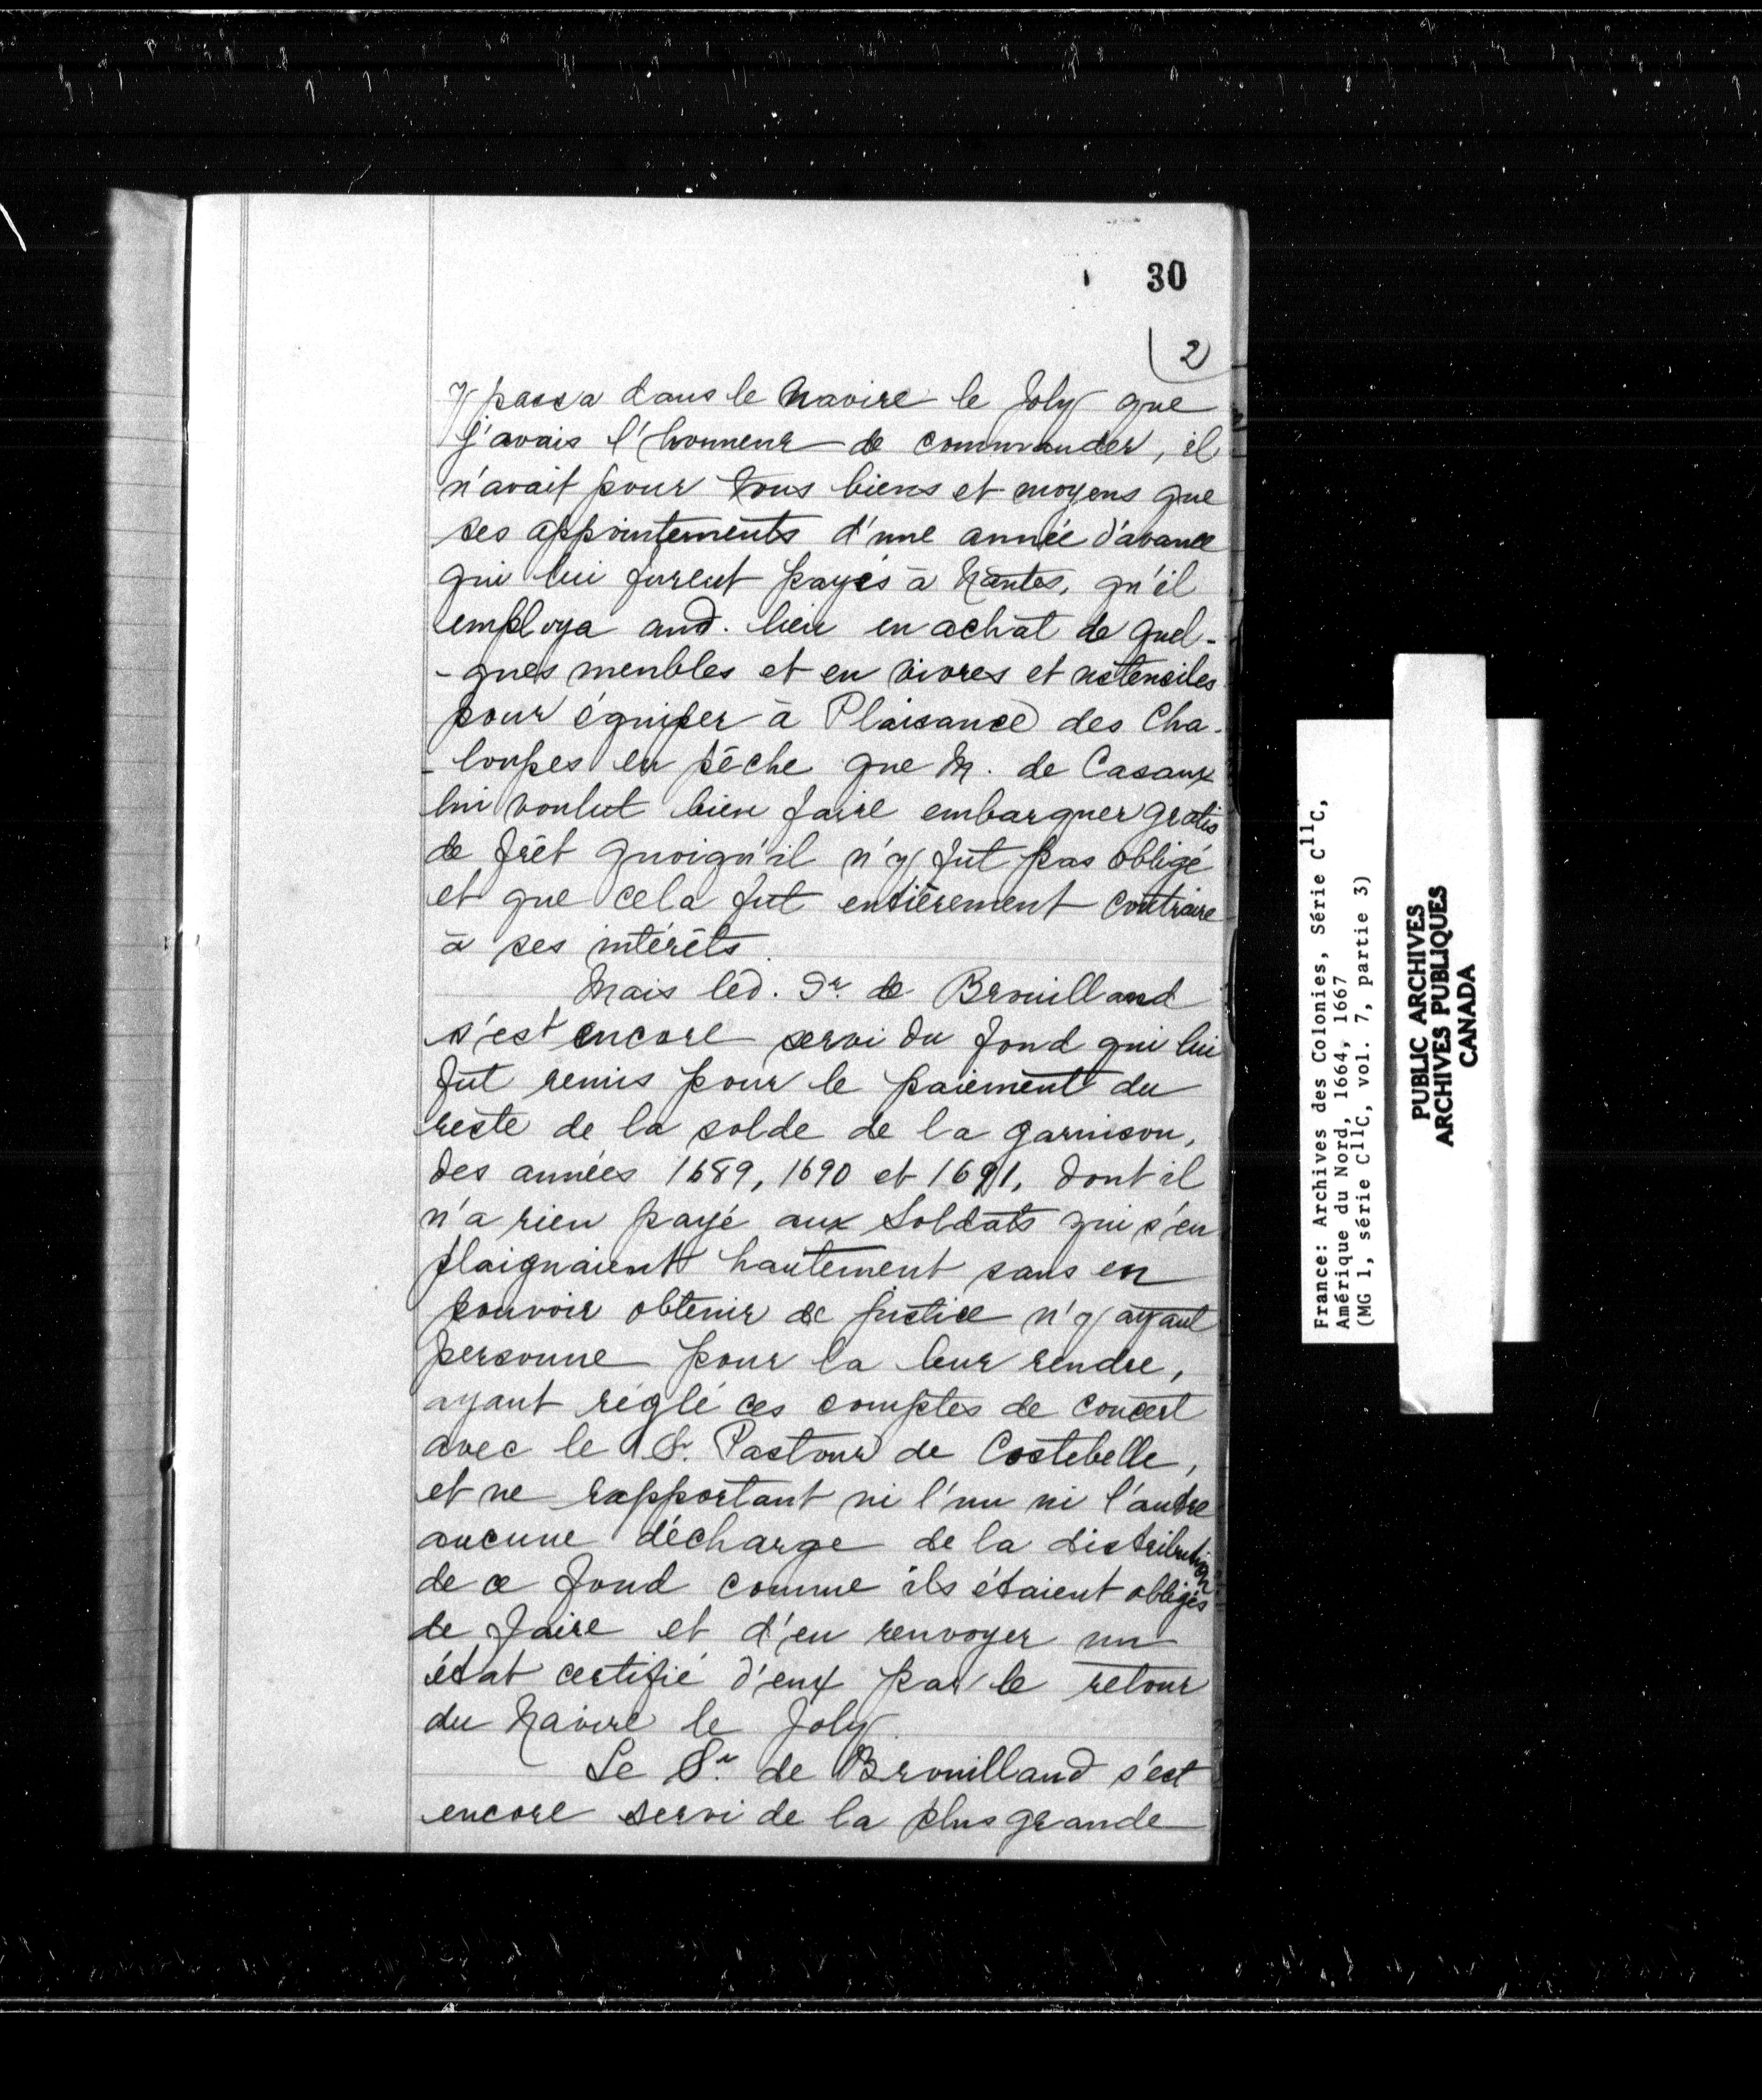 30
2
y passa dans le Navire le Joly que
j'avais l'honneur de commander, il
n'avait pour tous biens et moyens que
ses appointements d'une année d'avance
qui lui furent payés à Nantes, qu'il
employa aud. lieu en achat de quel-
-ques meubles et en vivres et ustensiles
pour équiper à Plaisance des Cha-
-loupes en pêche que M. de Casaux
lui voulut bien faire embarquer gratis
de frêt quoiqu'il n'y fut pas obligé
et que cela fut entièrement contraire
à ses intérêts.
Mais led. Sr. de Brouilland
s'est encore servi du fond qui lui
fut remis pour le paiement du
reste de la solde de la garnison,
des années 1689, 1690 et 1691, dont il
n'a rien payé aux Soldats qui s'en
plaignaient hautement sans en
pouvoir obtenir de justice n'y ayant
personne pour la leur rendre,
ayant réglé ces comptes de concert
avec le Sr. Pastour de Costebelle,
et ne rapportant ni l'un ni l'autre
aucune décharge de la distribution
de ce fond comme ils étaient obligés
de faire et d'en renvoyer un
état certifié d'eux par le retour
du Navire le Joly.
Le Sr. de Brouilland s'est
encore servi de la plus grande
France: Archives des Colonies, Série C11C,
Amérique du Nord, 1664, 1667
(MG 1, série C11C, vol. 7, partie 3)
PUBLIC ARCHIVES
ARCHIVES PUBLIQUES
CANADA